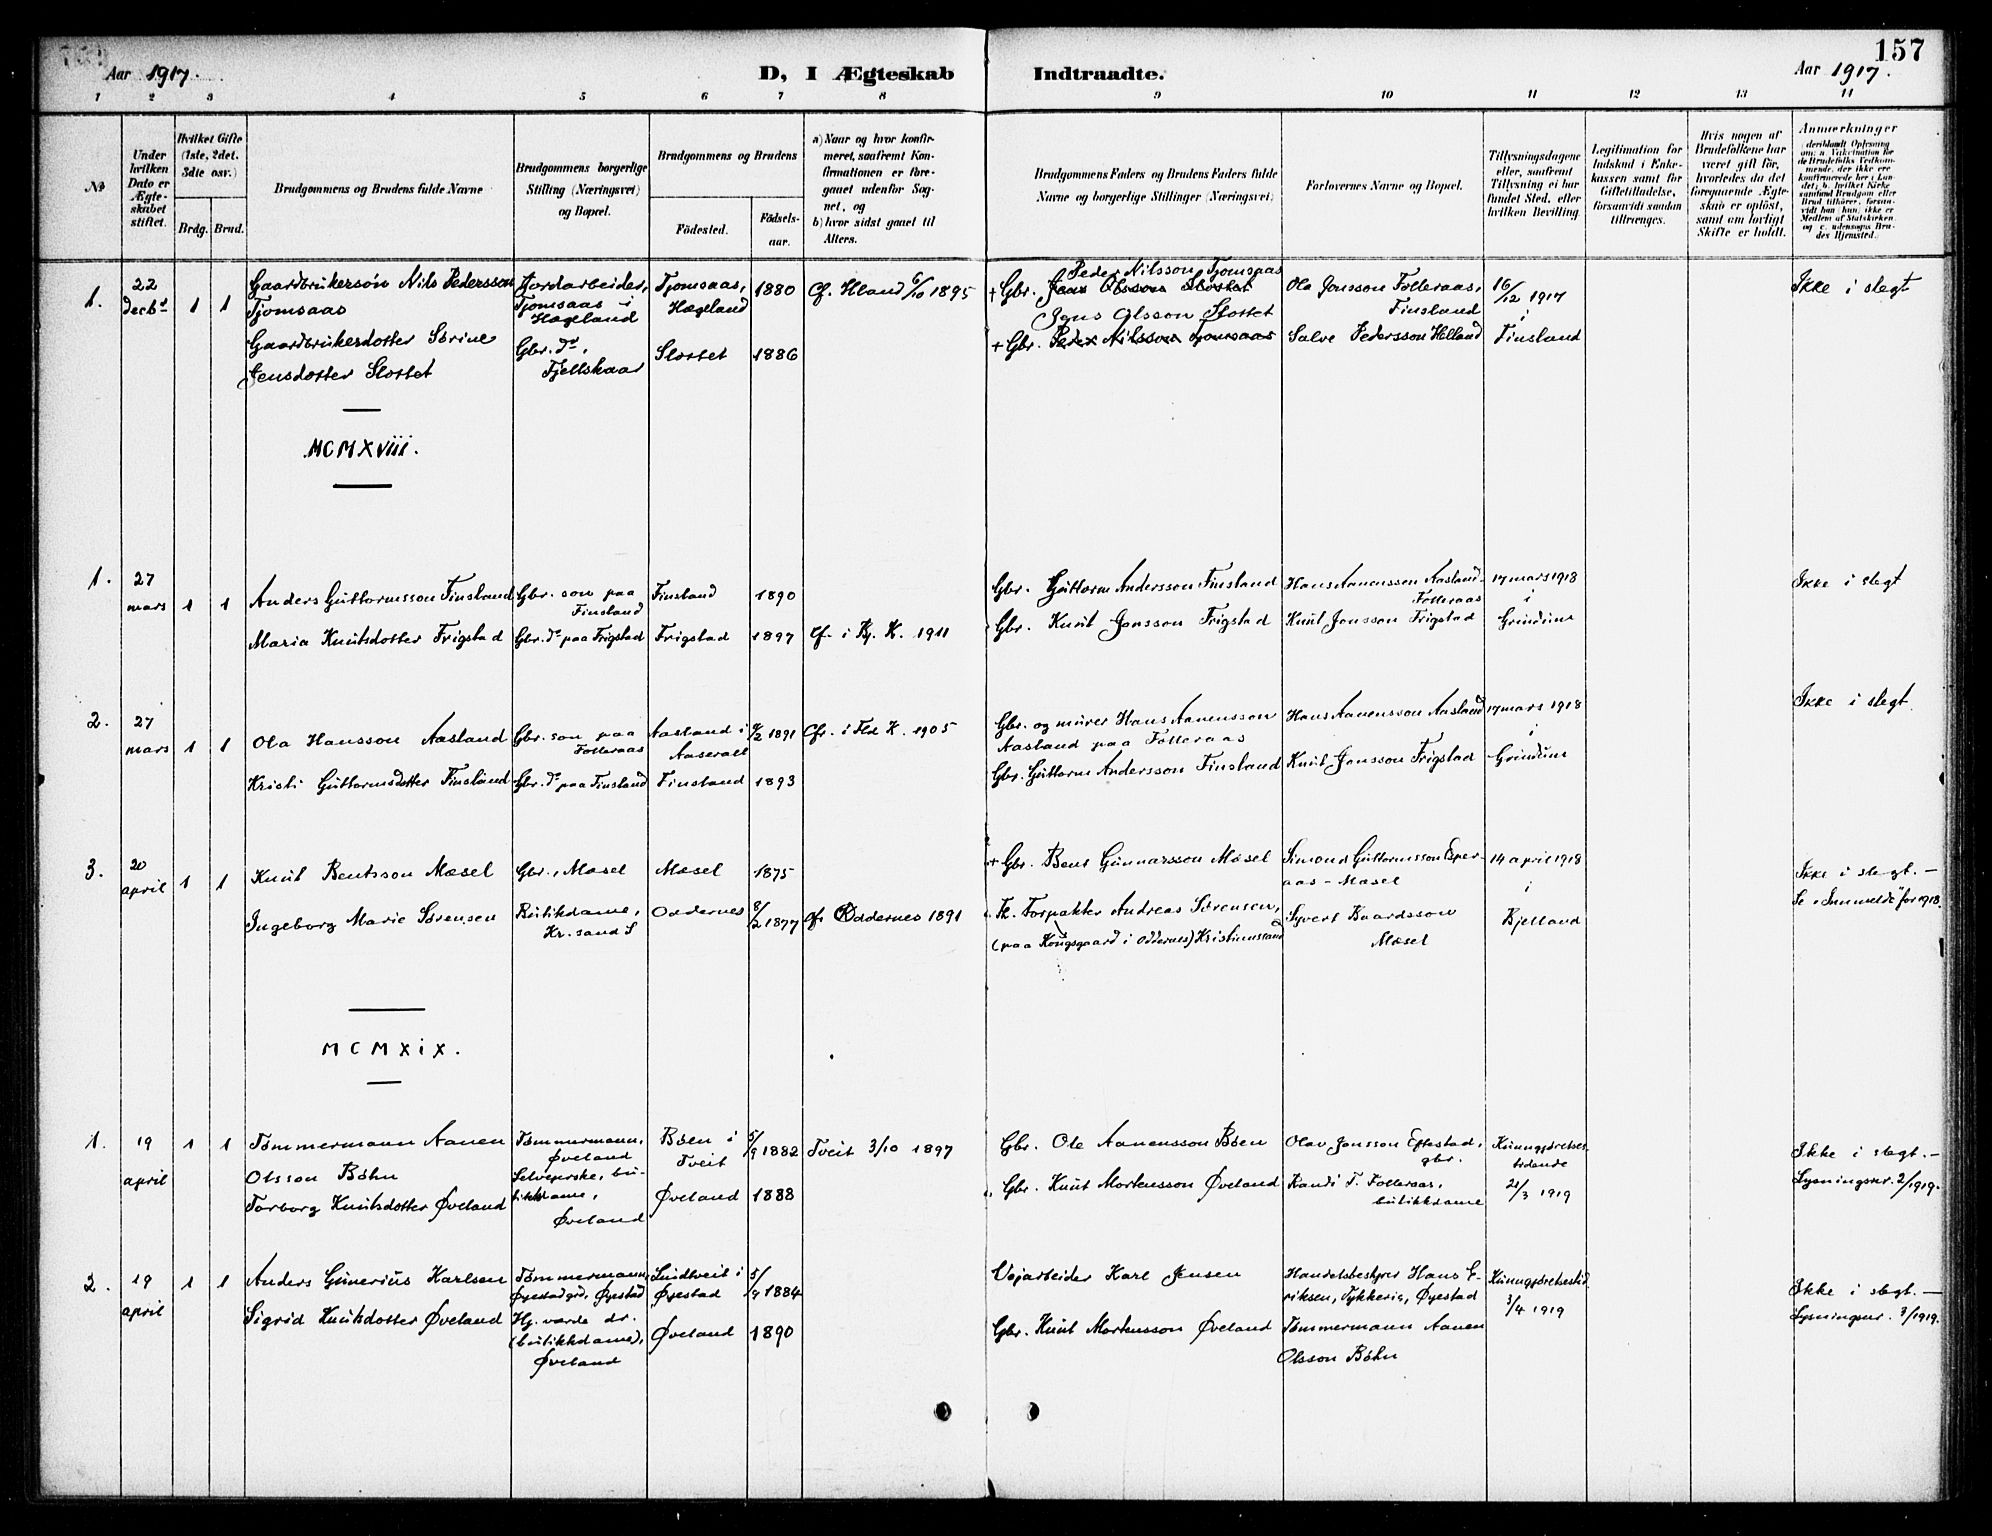 157
Aar 1917.
D, I Ægteskab Indtraadte.
Aar 1917.
1 2 3 4 5 6 7 8 9 10 11 12 13 14
No
Under hvilken Dato er Ægteskabet stiftet.
Hvilket Gifte (1ste, 2det, 3die osv.)
Brdg. Brud.
Brudgommens og Brudens fulde Navne
Brudgommens borgerlige Stilling (Næringsvei) og Bopæl.
Brudgommens og Brudens
Födested.
Födselsaar.
a) Naar og hvor konfirmeret, saafremt Konfirmationen er foregaaet udenfor Sognet, og
b) hvor sidst gaaet til Alters.
Brudgommens Faders og Brudens Faders fulde Navne og borgerlige Stillinger (Næringsvei)
Forlovernes Navne og Bopæl.
Tillysningsdagene eller, saafremt Tillysning ei har fundet Sted, efter hvilken Bevilling.
Legitimation for Indskud i Enkekassen samt for Giftetilladelse, forsaavidt saadan tiltrænges.
Hvis nogen af Brudefolkene har været gift før, hvorledes da det foregaaende Ægteskab er opløst, samt om lovligt Skifte er holdt.
Anmærkninger
1. 22 decbr 1 1
Gaardbrukersøn Nils Pedersson
Tjomsaas
Jordarbeider,
Tjomsaas i
Hægeland
Tjomsaas,
Hægeland
1880
Cf. Hland 6/10 1895
Peder Nilsson Tjomsaas
+ Gbr. Jens Olsson Slottet
Ola Jonsson Folleraas,
Finsland
16/12 1917
i
Finsland
Ikke i slegt
Gaardbrukerdotter Sørine
Jensdotter Slottet
Gbr. dr,
Fjellskaar
Slottet
1886
Jens Olsson Slottet
+ Gbr. Peder Nilsson Tjomsaas
Salve Pedersson Helland
MCMXVIII.
1. 27 mars 1 1
Anders Guttormsson Finsland
Gbr. søn paa
Finsland
Finsland
1890
Gbr. Guttorm Andersson Finsland
Hans Aanensson Aasland-
Folleraas
17 mars 1918
i
Grindum
Ikke i slegt
Maria Knutsdotter Frigstad
Gbr. dr paa Frigstad
Frigstad
1897
Cf. i Bj. K. 1911
Gbr. Knut Jonsson Frigstad
Knut Jonsson Frigstad
2. 27 mars 1 1
Ola Hansson Aasland
Gbr. søn paa
Folleraas
Aasland i
Aaserall
1891
1905
Gbr. og murer Hans Aanensson
Aasland paa Folleraas
Hans Aanensson Aasland
17 mars 1918
i
Grindum
Ikke i slegt
Kristi Guttormsdotter Finsland
Gbr. dr paa Finsland
Finsland
1893
Gbr. Guttorm Andersson Finsland
Knut Jonsson Frigstad
3. 20 april 1 1
Knut Bentsson Mæsel
Gbr., Mæsel
Mæsel
1875
+ Gbr. Bent Gunnarsson Mæsel
Simond Guttormsson Esper-
aas - Mæsel
14 april 1918
i
Bjelland
Ikke i slegt. -
Se "Innmeldt" for 1918.
Ingeborg Marie Sørensen
Butikdame,
Kr.sand S
Oddernes
8/2 1877
Cf. Oddernes 1891
Forpakter Andreas Sørensen,
(paa Kongsgaard i Oddernes) Kristianssand
Syvert Baardsson
Mæsel
MCMXIX.
1. 19 april 1 1
Tømmermann Aanen
Olsson Bøhn
Tømmermann,
Øveland
Bøen i
Tveit
5/9 1882
Tveit 3/10 1897
Gbr. Ole Aanensson Bøen
Olav Jonsson Eftestad,
gbr.
Kunngjørelses-
21/3 1919
Ikke i slegt. -
Lysningsnr. 2/1919.
Torborg Knutsdotter Øveland
Selveierske, bu-
tikkdame,
Øveland
Øveland
1888
Gbr. Knut Mortensson Øveland
Randi T. Folleraas,
butikkdame
2. 19 april 1 1
Anders Gunerius Karlsen
Tømmermann,
Øyestad
Lindtveit i
Øyestad
5/9 1884
Veiarbeider Karl Jensen
Handelsbestyrer Hans E-
riksen, Tykkerie, Øyestad
Kunngjørelsestid
3/4 1919
Ikke i slegt. -
Lysningsnr. 3/1919.
Sigrid Knutsdotter Øveland
Hj. værde. dr.
(butikkdame),
Øveland
Øveland
1890
Gbr. Knut Mortensson Øveland
Tømmermann Aanen
Olsson Bøhn